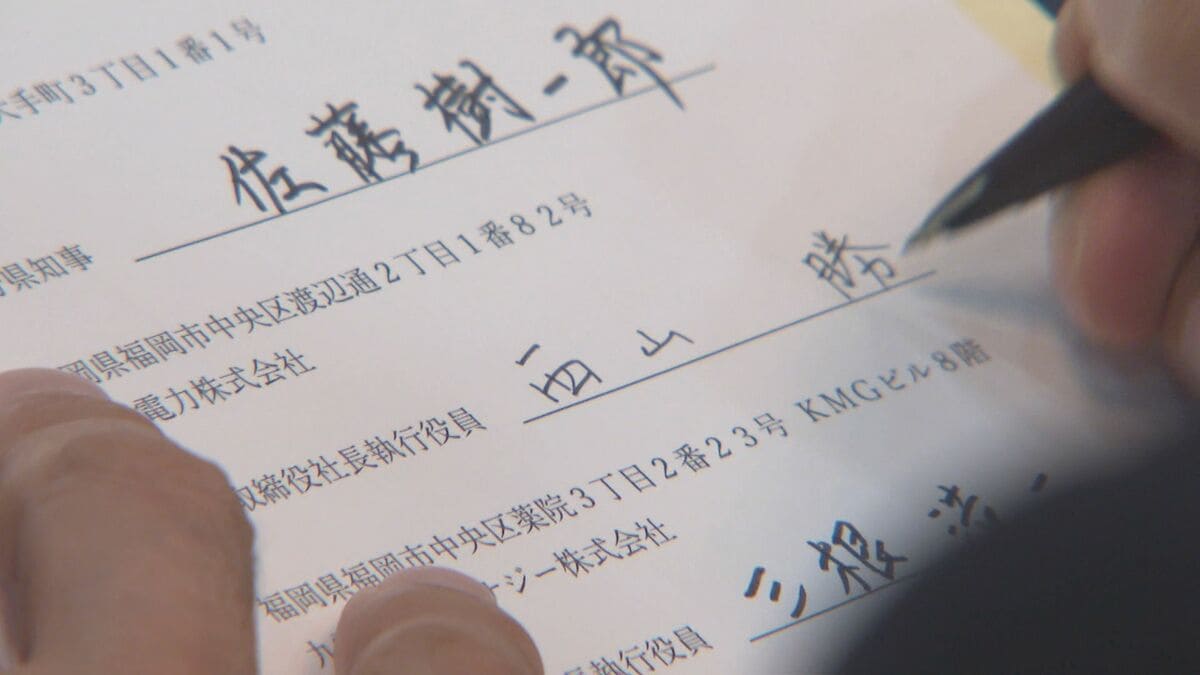 大手町3丁目1番1号
県知事 佐藤樹一郎
岡県福岡市中央区渡辺通2丁目1番82号
電力株式会社
取締役社長執行役員 西山 勝
福岡県福岡市中央区薬院3丁目2番23号 KMGビル8階
九 ージー株式会社
長執行役員 三根 浩一